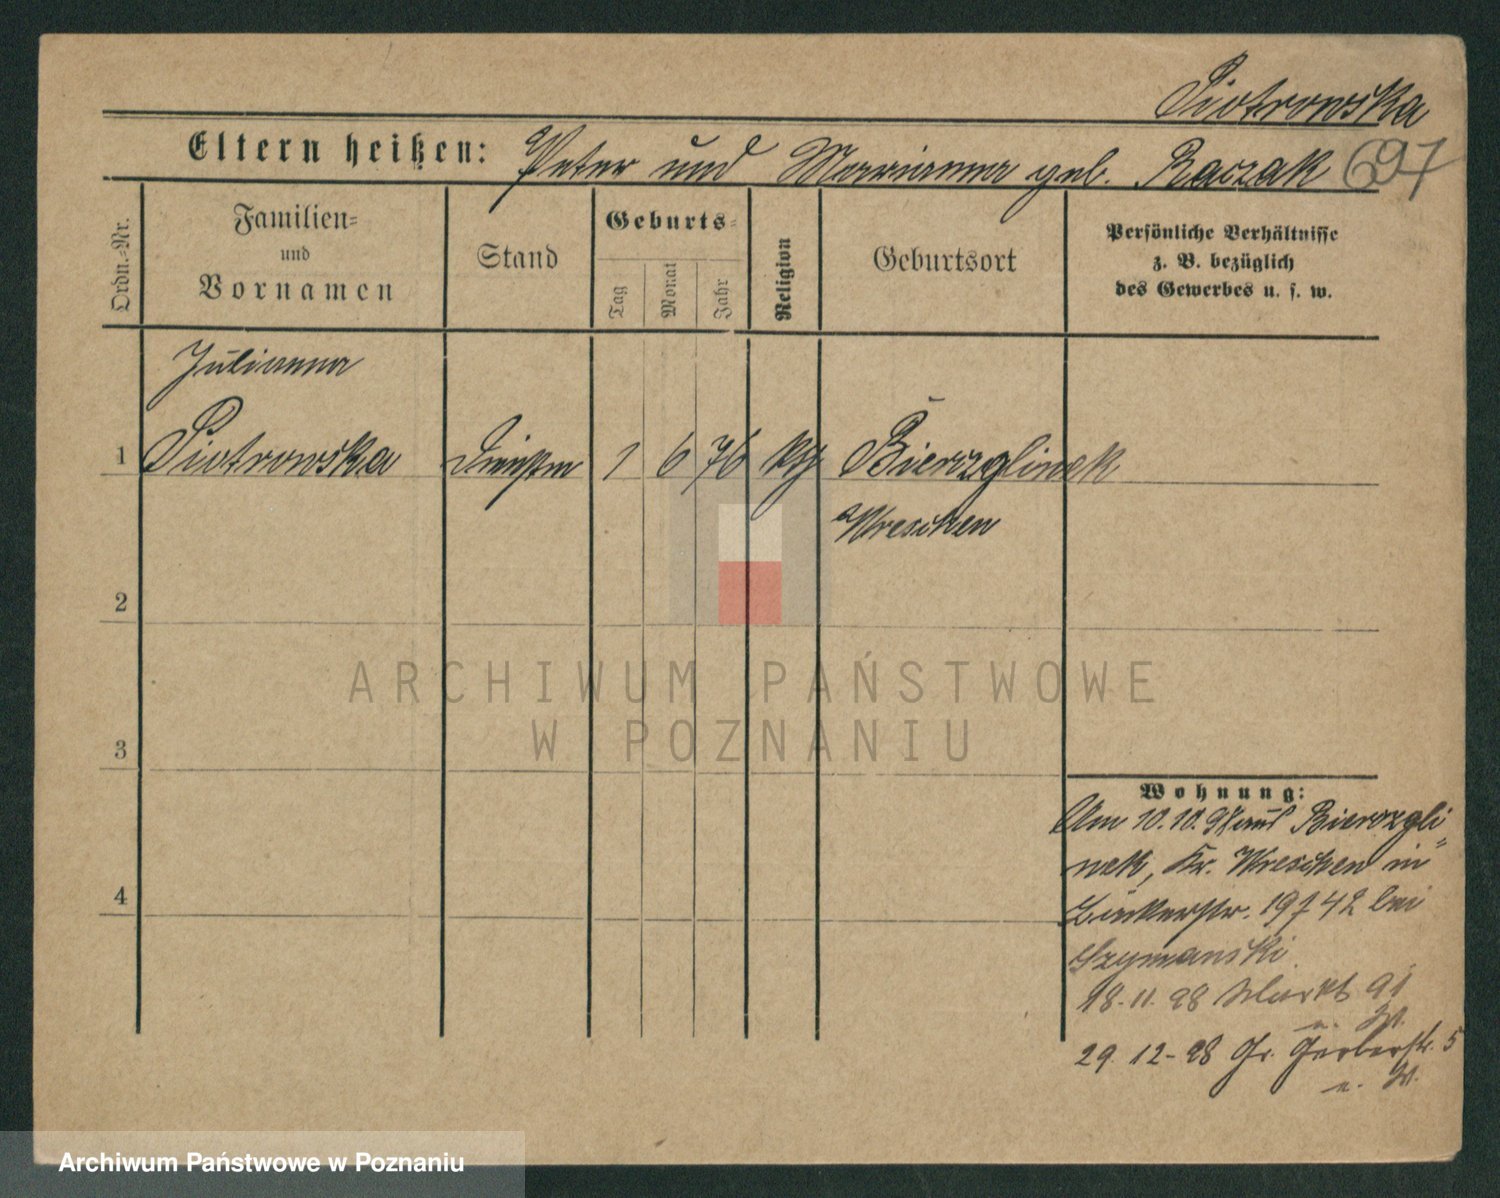 Piotrowska
Eltern heißen: Peter und Marianna geb. Raczak 697
Ordn.-Nr.
Familien-
und
Vornamen
Stand
Geburts-
Tag
Monat
Jahr
Religion
Geburtsort
Persönliche Verhältnisse
z. B. bezüglich
des Gewerbes u. s. w.
Julianna
1 Piotrowska 1 6 76 kth Bierzglinek
Wreschen
2
ARCHIWUM PAŃSTWOWE
W POZNANIU
3
Wohnung:
10.10. Bierzgli
nek, Kr. Wreschen in
42 bei
Szymanski
18.11.98 Markt 91
29.12-98 Gr. Gerberstr. 5
4
Archiwum Państwowe w Poznaniu